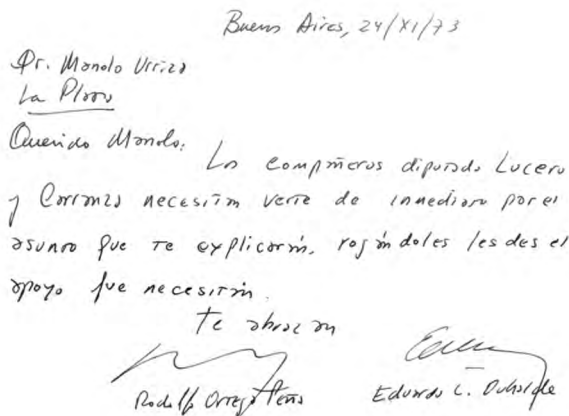 Buenos Aires, 24/XI/73
Dr. Manolo Urriza
La Plata
Querido Manolo:
Los compañeros diputado Lucero
y Carranza necesitan verte de inmediato por el
asunto que te explicarán, rogándoles les des el
apoyo que necesitan.
Te abrazan
Rodolfo Ortega Peña
Eduardo L. Duhalde